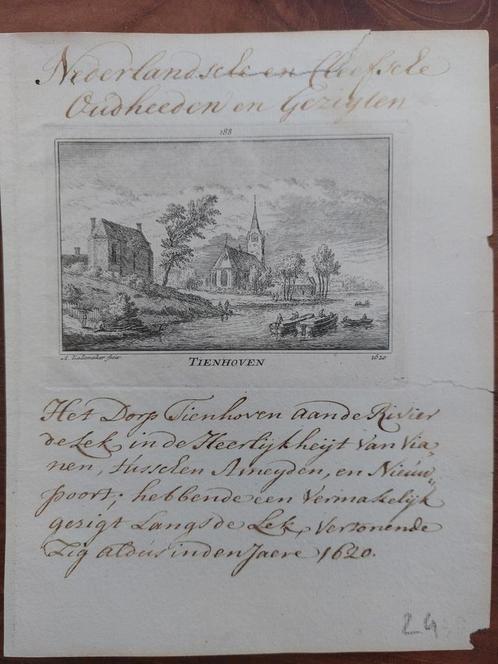 Nederlandsche en Cleefsche
Oudheeden en Gezigten
188
A. Rademaker fecit
TIENHOVEN
1620
Het Dorp Tienhoven aan de Rivier
de Lek in de Heerlijkheijt van Via„
nen, tusschen Ameyden, en Nieuw„
poort; hebbende een Vermakelijk
gezigt Langs de Lek, Vertonende
Zig aldus in den Jaere 1620.
24